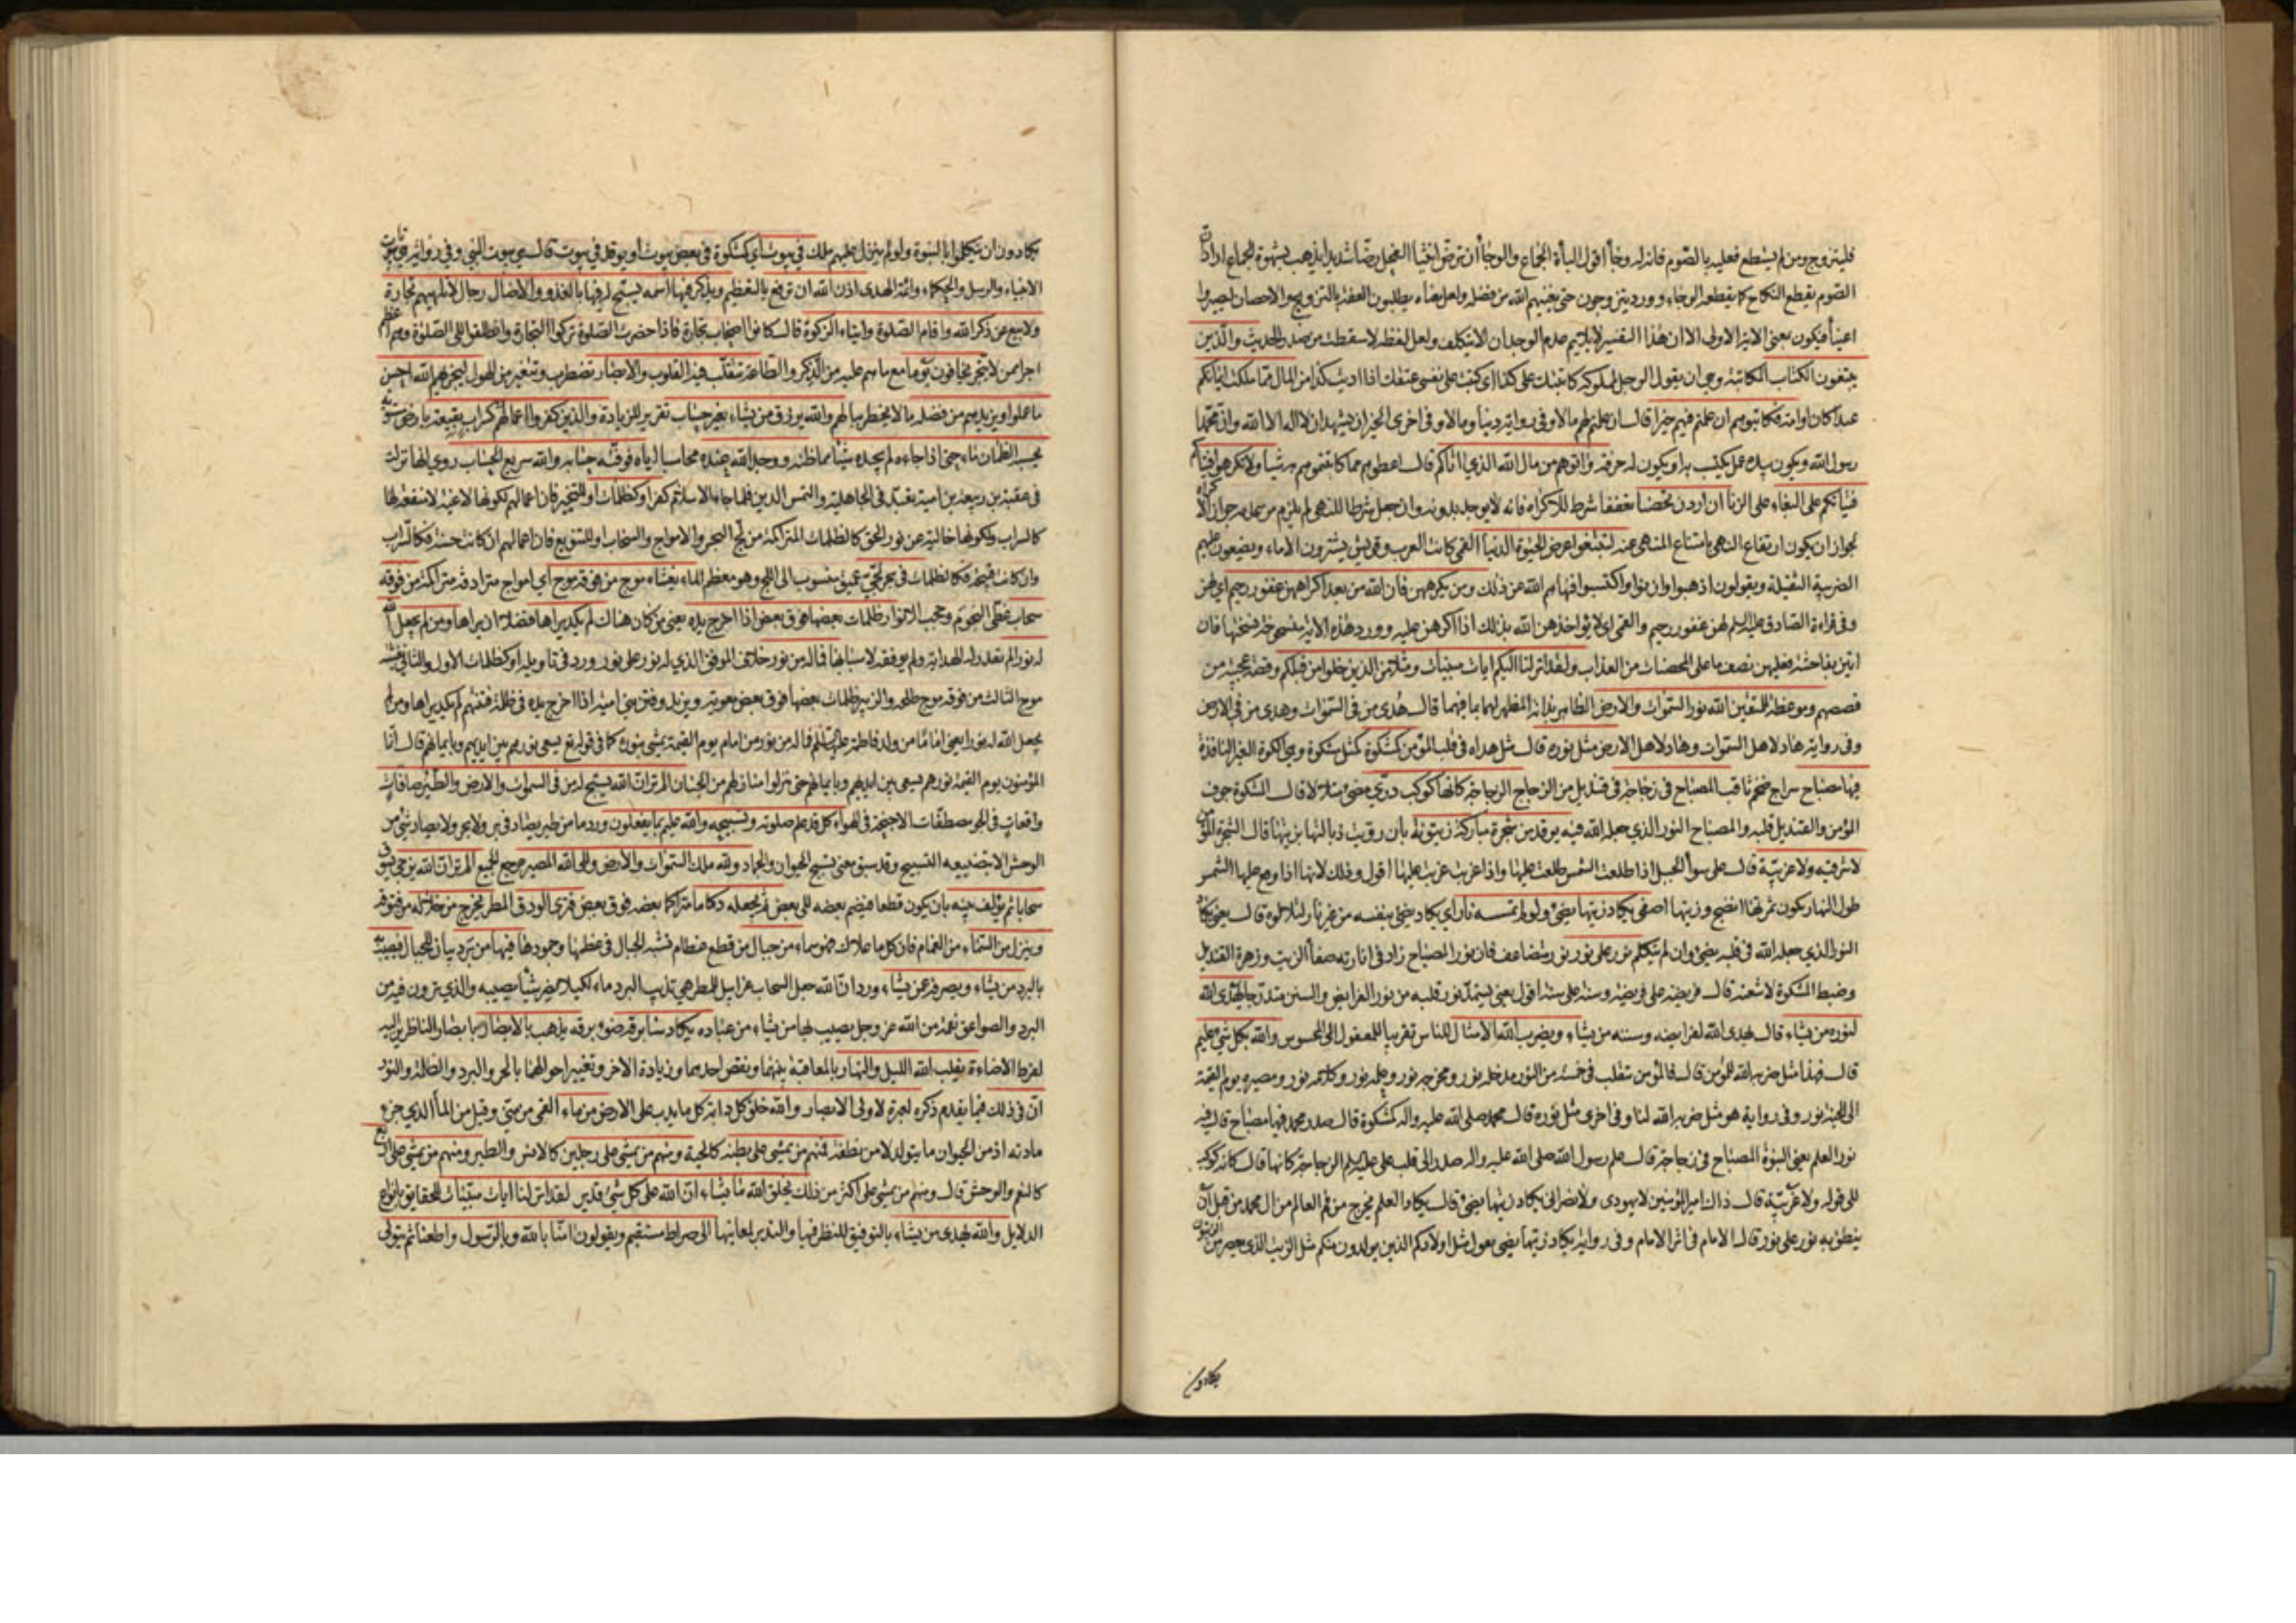 فليتزوج ومن لم يستطع فعليه بالصّوم فانه له وجأ اقول الباٴة الجماع والوجأ ان ترضّ انثيا الفحل رضّا شديدا يذهب بشهوة الجماع اراد انّ
الصّوم يقطع النكاح كما يقطعه الوجاء وورد يتزوجون حتى يغنيهم الله من فضله ولعل معناه يطلبون العفة بالتزويج والاحصان ليصيروا
اغنيأ فيكون بمعنى الاية الاولى الا ان هذا التفسير لا يلايم عدم الوجدان الا بتكلف ولعل لفظة لا سقطت من صدر الحديث والّذين
يبتغون الكتاب المكاتبة وهي ان يقول الرجل لمملوكه كاتبتك على كذا اي كتبت على نفسي عتقك اذا اديت كذا من المال ممّا ملكت ايمانكم
عبدا كان او امة فكاتبوهم ان علمتم فيهم خيرا قال ان علمتم لهم مالا وفي رواية دينا ومالا وفي اخرى الخير ان يشهد ان لا اله الا الله وانّ محمّدا
رسول الله ويكون بيده عمل يكتسب به او يكون له حرفة واتوهم من مال الله الذي اتاكم قال اعطوهم مما كاتبتموهم به شيأ ولا تكرهوا
فتياتكم على البغاء على الزنا ان اردن تحصنا تعففا شرط للاكراه فانه لا يوجد بدونه وان جعل شرطا للنهي لم يلزم من عدمه جواز الاكراه
لجواز ان يكون ارتفاع النهي بامتناع المنهي عنه لتبتغوا عرض الحيوة الدنيا القمي كانت العرب وقريش يشترون الاماء ويضعون عليهم
الضريبة الثقيلة ويقولون اذهبوا وازنوا واكتسبوا فنهاهم الله عن ذلك ومن يكرههن فان الله من بعد اكراههن غفور رحيم اي لهن
وفي قراءة الصادق عليه السلم لهن غفور رحيم والقمي اي لا يؤاخذهن الله بذلك اذا اكرهن عليه وورد هذه الاية منسوخة نسختها فان
اتين بفاحشة فعليهن نصف ما على المحصنات من العذاب ولقد انزلنا اليكم ايات مبينات ومثلا من الذين خلوا من قبلكم وقصة عجيبة من
قصصهم وموعظة للمتقين الله نور السّموات والارض الظاهر بذاته المظهر لهما بما فيهما قال هُدى من في السّموات وهدى من في الارض
وفي رواية هاد لاهل السّموات وهاد لاهل الارض مثل نوره قال مثل هداه في قلب المؤمن كمشكوة كمثل مشكوة وهي الكوة الغير النافذة
فيها مصباح سراج ضخم ثاقب المصباح في زجاجة في قنديل من الزجاج الزجاجة كانها كوكب درّي مضئ متلالأ قال المشكوة جوف
المؤمن والقنديل قلبه والمصباح النور الذي جعله الله فيه يوقد من شجرة مباركة زيتونة بان رويت ذبالتها بزيتها قال الشجرة المؤمن
لا شرقية ولا غربيّة قال على سوأ الجبل اذا طلعت الشمس طلعت عليها واذا غربت غربت عليها اقول وذلك لانها اذا وقع عليها الشمس
طول النهار تكون ثمرتها انضج وزيتها اصفى يكاد زيتها يضئ ولو لم تمسسه نار اي يكاد يضئ بنفسه من غير نار لتلالؤه قال يعني يكاد
النور الذي جعله الله في قلبه يضئ وان لم يتكلم نور على نور نور متضاعف فان نور المصباح زاد في انارته صفأ الزيت وزهرة القنديل
وضبط المشكوة لاشعته قال فريضة على فريضة وسنة على سنة اقول يعني يستمدّ نور قلبه من نور الفرايض والسنن متدرجا يهدى الله
لنوره من يشاء قال يهدى الله لفرايضه وسننه من يشاء ويضرب الله الامثال للناس تقريبا للمعقول الى المحسوس والله بكل شئ عليم
قال فهذا مثل ضربه الله للمؤمن قال فالمؤمن يتقلب في خمسة من النور مدخله نور ومخرجه نور وعلمه نور وكلامه نور ومصيره يوم القيمة
الى الجنة نور وفي رواية هو مثل ضربه الله لنا وفي اخرى مثل نوره قال محمد صلى الله عليه واله كمشكوة قال صدر محمد فيها مصباح قال فيه
نور العلم يعني النبوة المصباح في زجاجة قال علم رسول الله صلى الله عليه واله صدر الى قلب على عليه السلم الزجاجة كانها قال كانه كوكب
الى قوله ولا غربيّة قال ذاك امير المؤمنين لا يهودي ولا نصراني يكاد زيتها يضئ قال يكاد العلم يخرج من فم العالم من ال محمد من قبل ان
ينطق به نور على نور قال الامام في اثر الامام وفي رواية يكاد زيتها يضي يقول مثل اولادكم الذين يولدون منكم مثل الزيت الذي يعصر من الزيتون
يكادون
يكادون ان يتكلموا بالنبوة ولو لم ينزل عليهم ملك في بيوت اي كمشكوة في بعض بيوت او يوقد في بيوت قال هي بيوت النبي وفي رواية هي بيوتات
الانبياء والرسل والحكماء وائمة الهدى اذن الله ان ترفع بالتعظيم ويذكر فيها اسمه يسبّح له فيها بالغدو والاصال رجال لا تلهيهم تجارة
ولا بيع عن ذكر الله واقام الصّلوة وايتاء الزكوة قال كانوا اصحاب تجارة فاذا حضرت الصّلوة تركوا التجارة وانطلقوا الى الصّلوة وهم اعظم
اجرا ممن لا يتجر يخافون يوما مع ما هم عليه من الذّكر والطّاعة تتقلّب فيه القلوب والابصار تضطرب وتتغير من الهول ليجزيهم الله احسن
ما عملوا ويزيدهم من فضله ما لا يخطر ببالهم والله يرزق من يشاء بغير حساب تقرير للزيادة والذين كفروا اعمالهم كسراب بقيعة بارض مستوية
يحسبه الظمان ماء حتى اذا جاءه لم يجده شيئا مما ظنه ووجد الله عنده محاسبا اياه فوفّيه حسابه والله سريع الحساب روي انها نزلت
في عتبة بن ربيعة بن امية تعبّد في الجاهلية والتمس الدين فلما جاء الاسلام كفر او كظلمات او للتخيير فان اعمالهم لكونها لاغية لا منفعة لها
كالسراب ولكونها خالية عن نور الحق كالظلمات المتراكمة من لج البحر والامواج والسحاب او للتنويع فان اعمالهم ان كانت حسنة فكالسّراب
وان كانت قبيحة فكالظلمات في بحر لجّيّ عميق منسوب الى اللج وهو معظم الماء يغشاه موج من فوقه موج اي امواج مترادفة متراكمة من فوقه
سحاب غطّى النجوم وحجب الانوار ظلمات بعضها فوق بعض اذا اخرج يده يعني من كان هناك لم يكد يراها فضلا ان يراها ومن لم يجعل الله
له نورا لم يقدر له الهداية ولم يوفقه لاسبابها فما له من نور خلاف الموفق الذي له نور على نور وورد في تاويله او كظلمات الاول والثاني يغشيه
موج الثالث من فوقه موج طلحه والزبير ظلمات بعضها فوق بعض معوية ويزيد وفتن بني امية اذا اخرج يده في ظلمة فتنتهم لم يكد يراها ومن لم
يجعل الله له نورا يعني امامًا من ولد فاطمة عليها السلم فما له من نور من امام يوم القيمة يمشي بنوره كما في قوله تع يسعى نورهم بين ايديهم وبايمانهم قال انّما
المؤمنون يوم القيمة نورهم يسعى بين ايديهم وبايمانهم حتى ينزلوا منازلهم من الجنان الم تر انّ الله يسبّح له من في السموات والارض والطّير صافات
واقفات في الجو مصطفّات الاجنحة في الهواء كل قد علم صلوته وتسبيحه والله عليم بما يفعلون ورد ما من طير يصاد في بر ولا بحر ولا يصاد شئ من
الوحش الا بتضييعه التسبيح وقد سبق معنى تسبيح الحيوان والجماد ولله ملك السّموات والارض والى الله المصير مرجع الجميع الم تر انّ الله يزجي يسوق
سحابا ثم يؤلف بينه بان يكون قطعا فيضم بعضه الى بعض ثم يجعله ركاما متراكما بعضه فوق بعض فترى الودق المطر يخرج من خلاله من فتوقه
وينزل من السّماء من الغمام فان كل ما علاك فهو سماء من جبال من قطع عظام تشبه الجبال في عظمها وجمودها فيها من برد بيان للجبال فيصيب
بالبرد من يشاء ويصرفه عمن يشاء ورد انّ الله جعل السحاب غرابيل للمطر هي تذيب البرد ماء لكيلا يضر شيأ يصيبه والذي ترون فيه من
البرد والصواعق نقمة من الله عز وجل يصيب بها من يشاء من عباده يكاد سنا برقه ضوء برقه يذهب بالابصار بابصار الناظرين اليه
لفرط الاضاءة يقلب الله الليل والنهار بالمعاقبة بينهما ونقص احدهما وزيادة الاخر وتغيير احوالهما بالحر والبرد والظلمة والنور
انّ في ذلك فيما تقدم ذكره لعبرة لاولى الابصار والله خلق كل دابة كل ما يدب على الارض من ماء القمي من منيّ وقيل من المأ الذي جزء
مادته اذ من الحيوان ما يتولد لا من نطفة فمنهم من يمشي على بطنه كالحية ومنهم من يمشي على رجلين كالانس والطير ومنهم من يمشي على اربع
كالنعم والوحش قال ومنهم من يمشي على اكثر من ذلك يخلق الله ما يشاء انّ الله على كل شئ قدير لقد انزلنا ايات مبيّنات للحقايق بانواع
الدلايل والله يهدى من يشاء بالتوفيق للنظر فيها والتدبر لمعانيها الى صراط مستقيم ويقولون امنّا بالله وبالرّسول واطعنا ثم يتولى